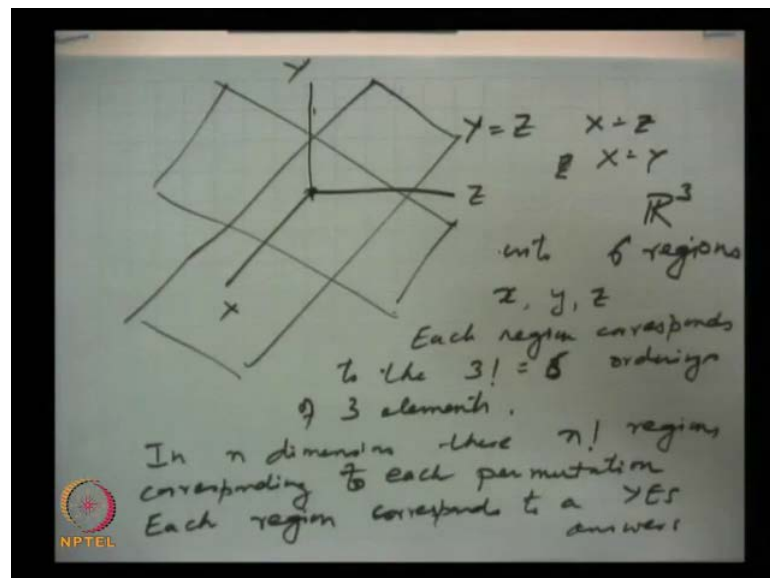 Y
Y = Z X = Z
X = Y
Z
ℝ³
into 6 regions
X
x, y, z
Each region corresponds
to the 3! = 6 orderings
of 3 elements.
In n dimension there n! regions
corresponding to each permutation
Each region corresponds to a YES
answers
NPTEL